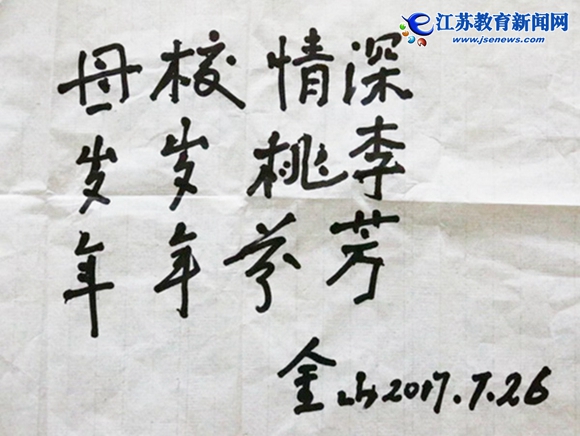 江苏教育新闻网
www.jsenews.com
母校情深
岁岁桃李
年年芬芳
金山2017.7.26